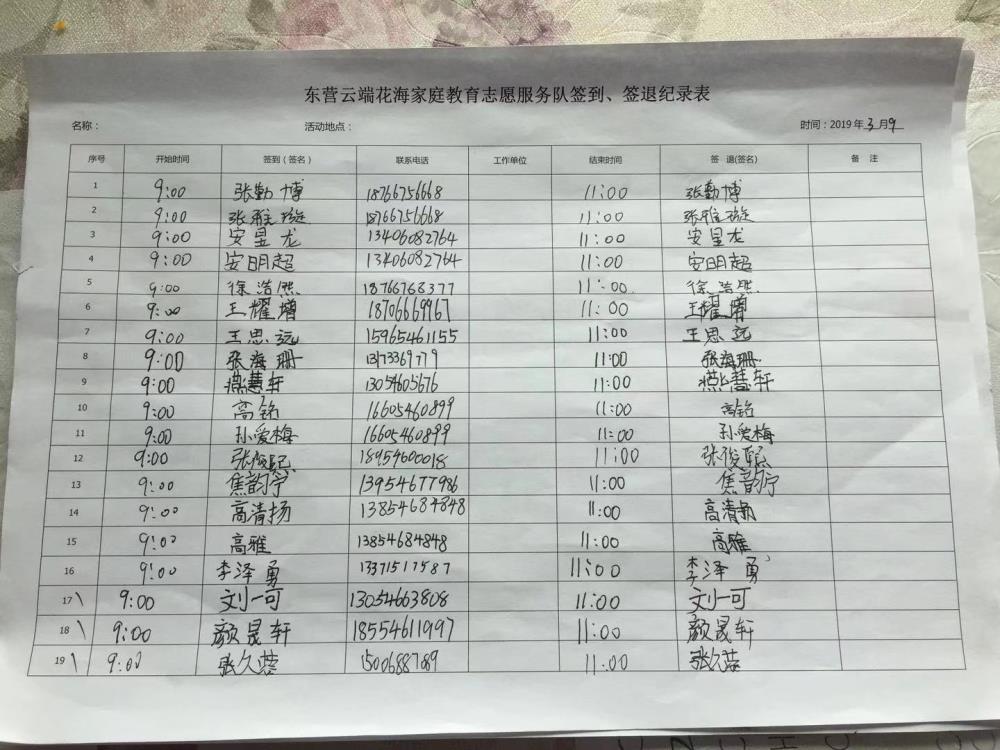 东营云端花海家庭教育志愿服务队签到、签退纪录表
名称： 活动地点： 时间：2019年3月9
序号 开始时间 签到（签名） 联系电话 工作单位 结束时间 签 退(签名) 备 注
1 9:00 张勤博 18766756668 11:00 张勤博
2 9:00 张雅璇 18766756668 11:00 张雅璇
3 9:00 安昱龙 13406082764 11:00 安昱龙
4 9:00 安明超 13406082764 11:00 安明超
5 9:00 徐浩然 18766768377 11:00 徐浩然
6 9:00 王耀增 18706669967 11:00 王耀增
7 9:00 王思远 15965461155 11:00 王思远
8 9:00 张海珊 13173369779 11:00 张海珊
9 9:00 燕慧轩 13054605676 11:00 燕慧轩
10 9:00 高铭 16605460899 11:00 高铭
11 9:00 孙爱梅 16605460899 11:00 孙爱梅
12 9:00 张俊熙 18954600018 11:00 张俊熙
13 9:00 焦韵宁 13954677986 11:00 焦韵宁
14 9:00 高清扬 13854684848 11:00 高清扬
15 9:00 高雅 13854684848 11:00 高雅
16 9:00 李泽勇 13371517587 11:00 李泽勇
17 9:00 刘一可 13054663808 11:00 刘一可
18 9:00 颜晟轩 18554611997 11:00 颜晟轩
19 9:00 张久蓉 1500688789 11:00 张久蓉